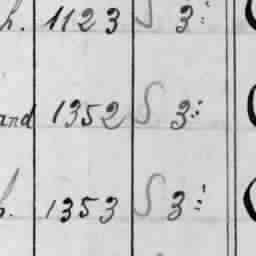 h. 1123 S 3
and 1352 S 3
h. 1353 S 3